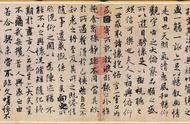 盛一觴一詠亦足以暢敘幽情
是日也天朗氣清惠風和暢仰
觀宇宙之大俯察品類之盛
所以遊目騁懷足以極視聽之
娛信可樂也夫人之相與俯仰
一世或取諸懷抱悟言一室之內
或因寄所託放浪形骸之外雖
趣舍萬殊靜躁不同當其欣
於所遇蹔得於己怏然自足不
知老之將至及其所之既惓情
隨事遷感慨係之矣向之所
欣俛仰之間以為陳迹猶不
能不以之興懷況脩短隨化終
期於盡古人云死生亦大矣豈
不痛哉每攬昔人興感之由
若合一契未嘗不臨文嗟悼不